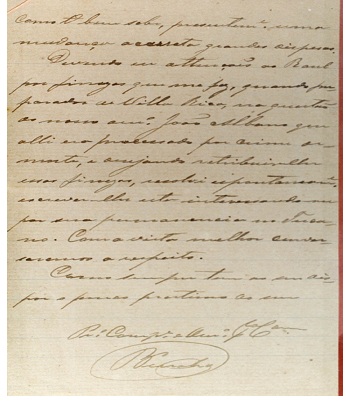 como V. bem sabe, presentem.e uma
mudança acarreta grandes despesas.
Devendo eu attenções ao Raul
por finezas que me fez, quando
parados de Villa Rica, na questão
do nosso am.o João Albano que
alli era processado por crime de
morte, e desejando retribuir-lhe
essas finezas, resolvi espontaneam.e
escrever-lhe esta interessando-me
por sua permanencia no
no. Com a vista melhor conver
saremos a respeito.
Como sempre tem ao seu dis-
por o pouco prestimo do seu
Comp.e e Am.o